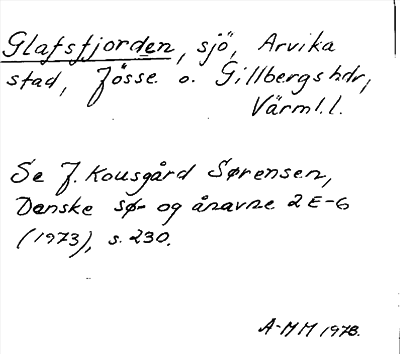 Glafsfjorden, sjö, Arvika
stad, Jösse o. Gillbergs hdr,
Värml.l.
Se J. Kousgård Sørensen,
Danske sø- og ånavne 2 E-G
(1973), s. 230.
A-MM 1978.